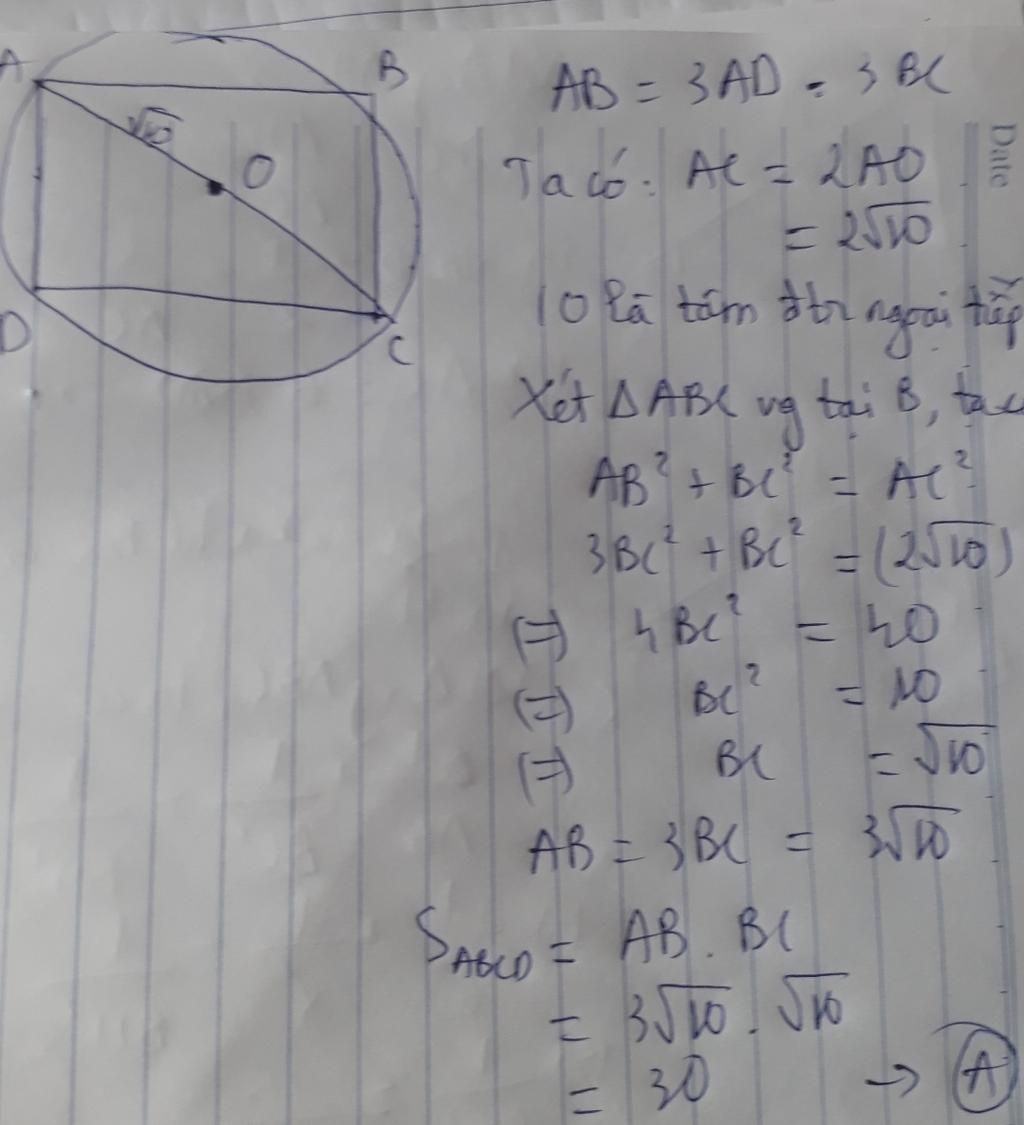 A
B
√10
O
D
C
Date
AB = 3AD = 3BC
Ta có: AC = 2AO
= 2√10
(O là tâm đtr ngoại tiếp
Xét ΔABC vg tại B, ta c
AB² + BC² = AC²
3BC² + BC² = (2√10)
(=) 4BC² = 40
(=) BC² = 10
(=) BC = √10
AB = 3BC = 3√10
S_ABCD = AB . BC
= 3√10 . √10
= 30 → A